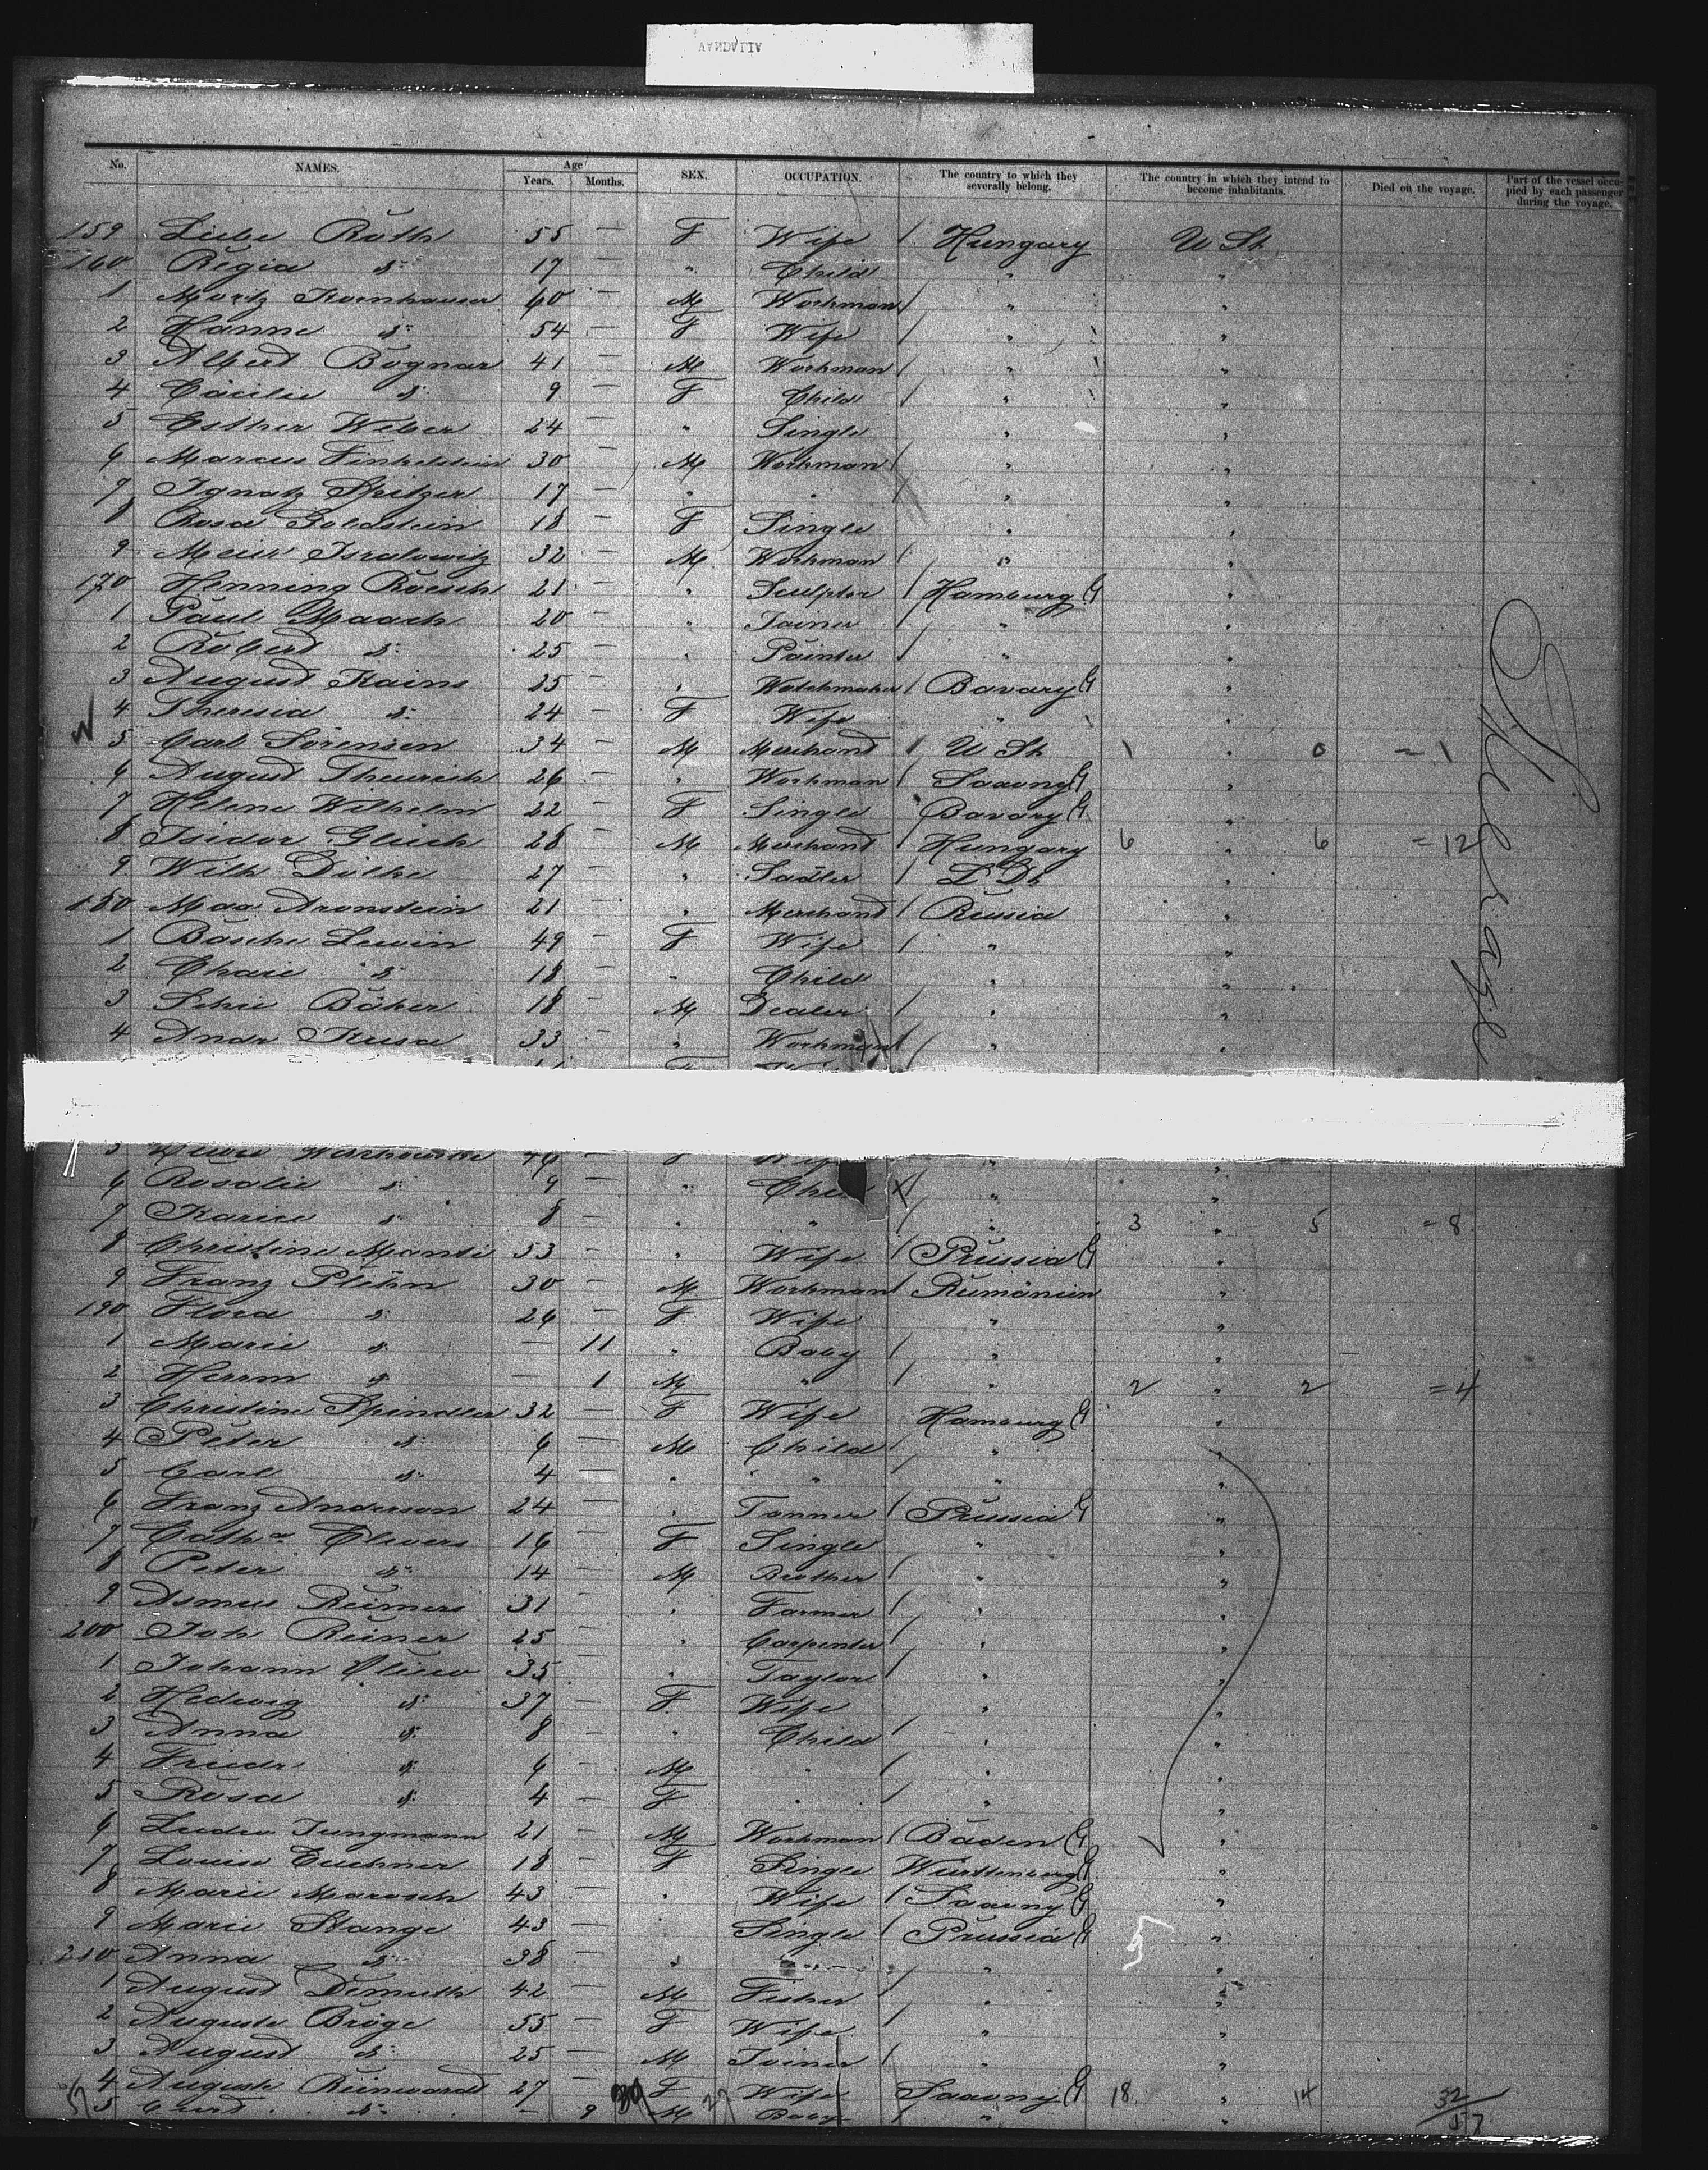 VANDALIA
No. NAMES. Age Years. Months. SEX. OCCUPATION. The country to which they severally belong. The country in which they intend to become inhabitants. Died on the voyage. Part of the vessel occupied by each passenger during the voyage.
159 Liebe Roth 55 — F Wife / Hungary U St
160 Regia d: 17 — " Child " "
1 Moritz Kornhauser 60 — M Workman / " "
2 Hanne d: 54 — F Wife / " "
3 Albert Bognar 41 — M Workman / " "
4 Cäcilie d: 9 — F Child / " "
5 Esther Weber 24 — " Single " "
6 Marcus Finkelstein 30 — M Workman / " "
7 Ignatz Spitzer 17 — " " / " "
8 Rosa Goldstein 18 — F Single " "
9 Meier Isralowitz 32 — M Workman / " "
170 Henning Roesch 21 — " Sculptor / Hamburg G "
1 Paul Maack 20 — " Joiner / " "
2 Robert d: 25 — " Painter / " "
3 August Kains 25 — " Watchmaker / Bavary G "
4 Theresia d: 24 — F Wife " "
5 Carl Sörensen 34 — M Merchand / U St 1 " 0 = 1
6 August Theurich 26 — " Workman / Saxony G "
7 Helene Wilhelm 22 — F Single Bavary G "
8 Isidor Glück 28 — M Merchand / Hungary 6 " 6 = 12
9 Wilh 27 — " Sadler / "
180 Max Aronstein 21 — " Merchand / Russia "
1 Basche Lewin 49 — F Wife / " "
2 Chaie d: 18 — " Child " "
3 Schie Bäker 18 — M Dealer / " "
4 Andr Kusa 33 — " Workman / " "
6 Rosalie d: 9 — " Child X/ " "
7 d: 8 — " " / " 3 " 5 = 8
8 Christine 53 — " Wife / Prussia G "
9 Franz Plehn 30 — M Workman / Rumänien "
190 Flora d: 26 — F Wife " "
1 Marie d: — 11 " Baby / " "
2 Herrm d: — 1 M " / " 2 " 2 = 4
3 Christine Spindler 32 — F Wife Hamburg G "
4 Peter d: 6 — M Child / " "
5 Carl d: 4 — " " / " "
6 Franz Anderson 24 — " Tanner / Prussia G "
7 Cathа Clevers 16 — F Single " "
8 Peter d: 14 — M Brother / " "
9 Asmus Reimers 31 — " Farmer / " "
200 Joh Reimer 25 — " Carpenter / " "
1 Johann 35 " Taylor / " "
2 Hedwig d: 37 — F Wife " "
3 Anna d: 8 — " Child / " "
4 Friedr d: 6 — M " / " "
5 Rosa d: 4 — F " / " "
6 Ludw Jungmann 21 — M Workman / Baden G "
7 Louise Euchner 18 — F Single Württemberg G "
8 Marie Marosch 43 — " Wife / Saxony G "
9 Marie Stange 43 — " Single / Prussia G "
210 Anna d: 38 — " " / " "
1 August Demuth 42 — M Fisher / " "
2 Auguste Bröge 55 — F Wife / " "
3 August d: 25 — M Joiner / " "
4 Auguste Reinward 27 — F Wife Saxony G 18 " 14 32
5 d: — 9 M Baby " " 57
Steerage